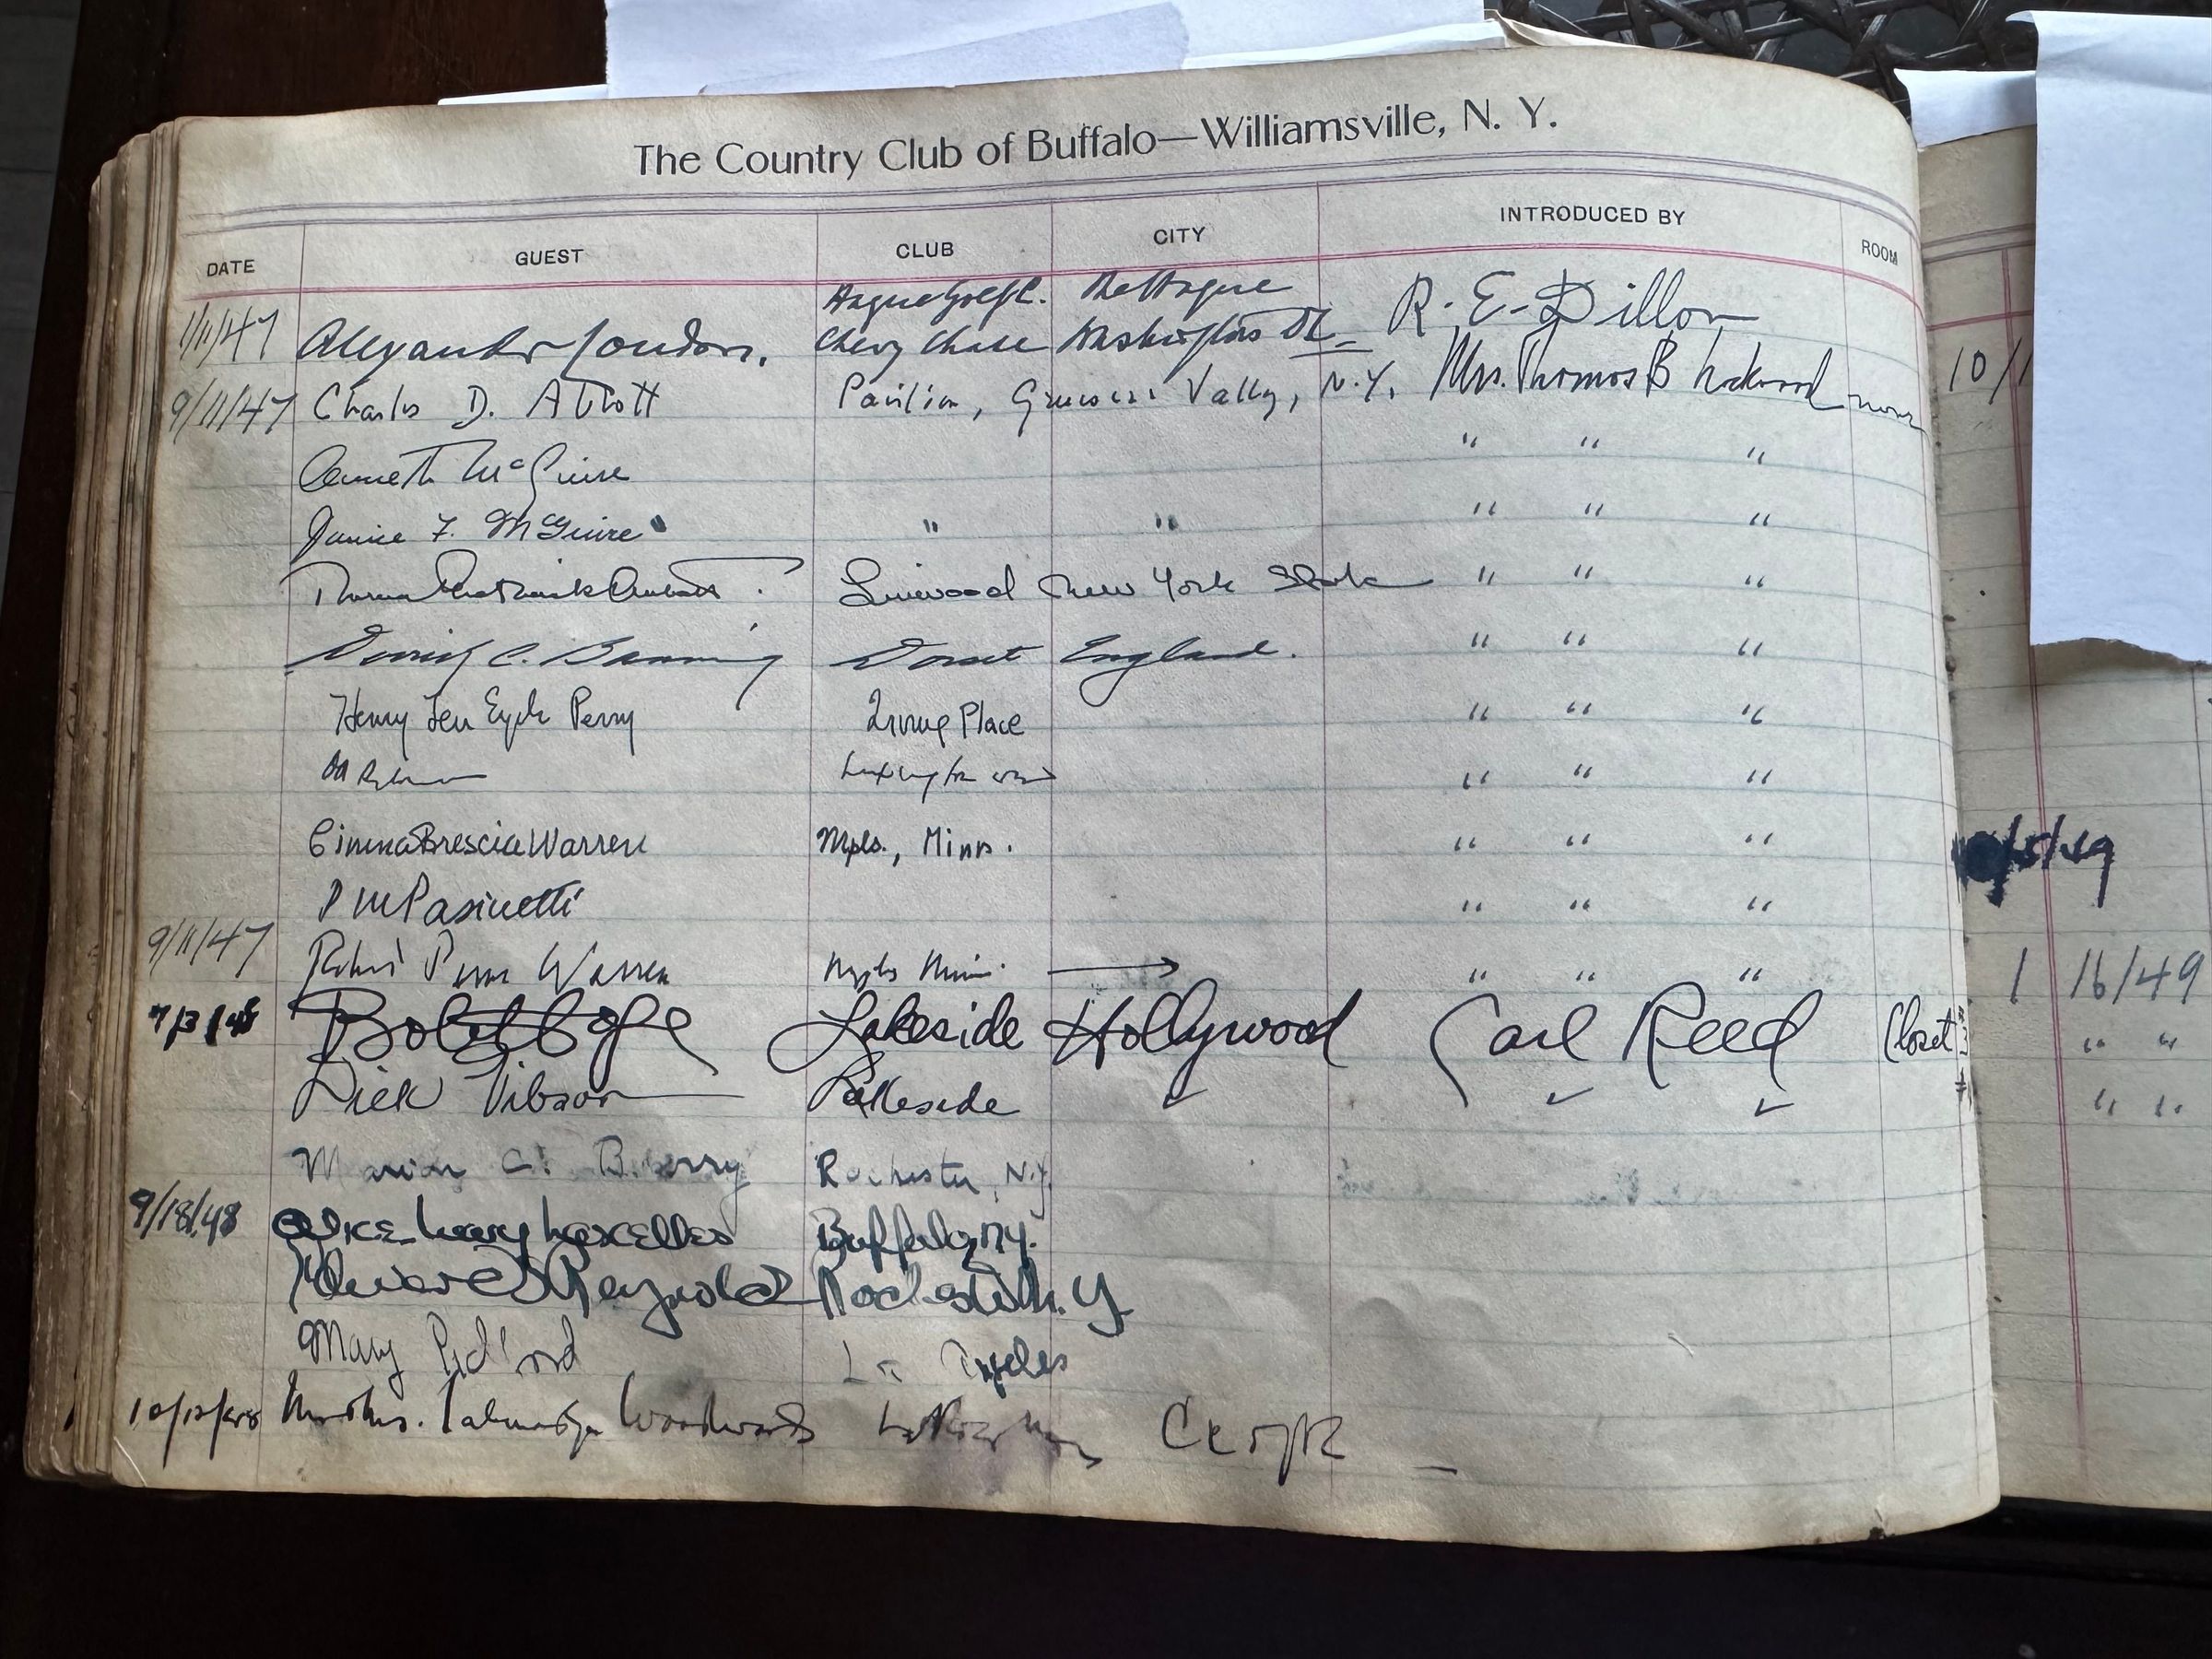 The Country Club of Buffalo—Williamsville, N. Y.
DATE GUEST CLUB CITY INTRODUCED BY ROOM
Hague Golf C. The Hague
1/11/47 Alexander Loudon. Chevy Chase Washington DC R. E. Dillon
9/11/47 Charles D. Abbott Pavilion, Genesee Valley, N.Y. Mrs. Thomas B Lockwood none
McGuire " " "
Janice F. McGuire " " " " "
Linwood New York State " " "
C. Banning Dorset England. " " "
Henry Ten Eyck Perry Irving Place " " "
" " "
Cinina Brescia Warren Mpls., Minn. " " "
P M Pasinetti " " "
9/11/47 Robert Penn Warren Mpls Minn. → " " "
7/3/48 Bob Hope Lakeside Hollywood Carl Reed Closet
Dick Gibson Lakeside ✓ ✓ ✓
Marion C. B. Rochester, N.Y.
9/18/48 Lascelles Buffalo, N.Y.
Reynolds Rochester N.Y.
Mary Pickford Los Angeles
10/12/48 Mr & Mrs. Talmadge Woodward
10/1
/5/49
1 16/49
" "
" "